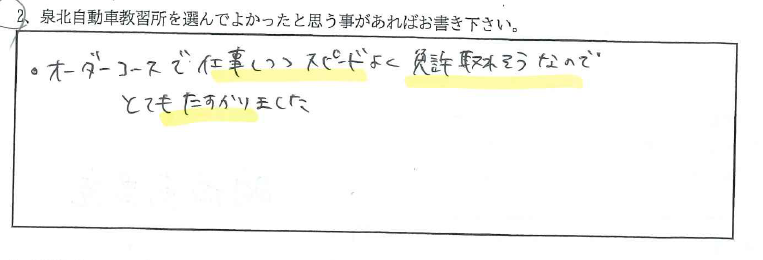 2、泉北自動車教習所を選んでよかったと思う事があればお書き下さい。
・オーダーコースで仕事しつつスピードよく免許取れそうなので
とてもたすかりました